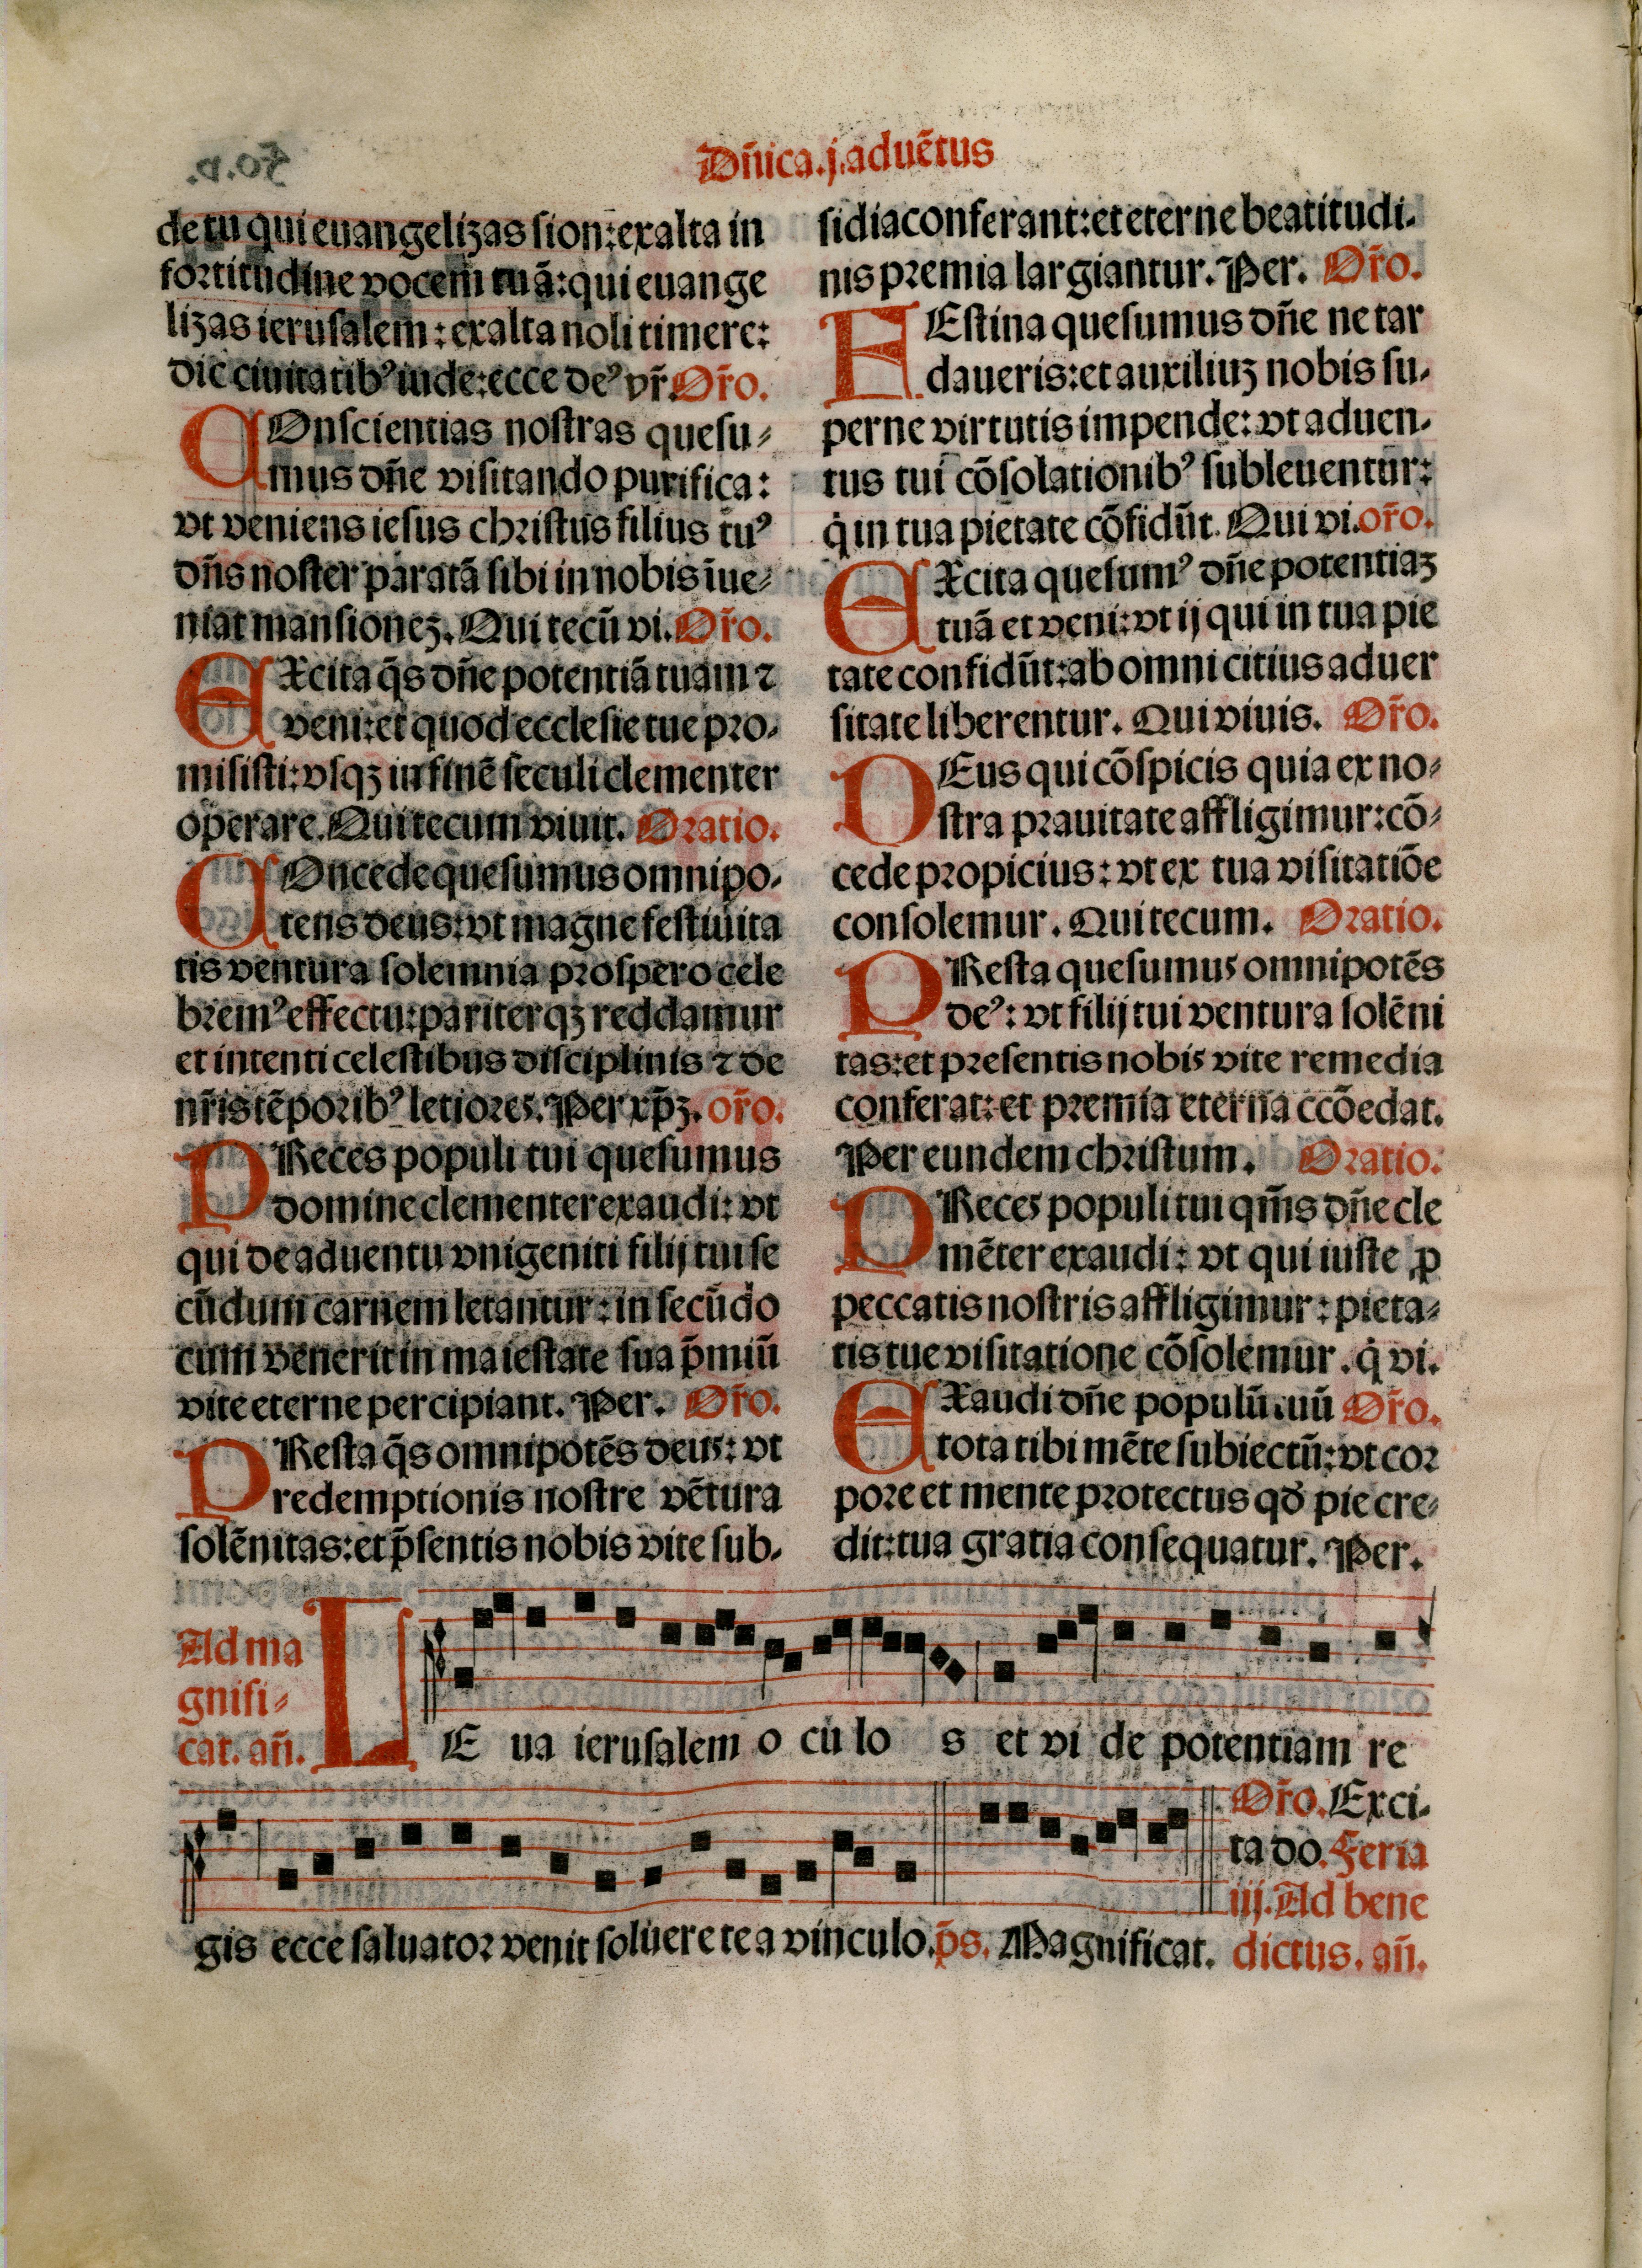 Dñica.j.aduẽtus
de tu qui euangelizas sion:exalta in
fortitudine vocem tuã:qui euange
lizas ierusalem:exalta noli timere:
dic ciuitatibꝰ iude:ecce deꝰ vr̃.Or̃o.
COnscientias nostras quesu-
mus dñe visitando purifica:
vt veniens iesus christus filius tuꝰ
dñs noster paratã sibi in nobis ĩue-
niat mansioneꝫ. Qui tecũ vi. Or̃o.
EXcita q̃s dñe potentiã tuam ⁊
veni:et quod ecclesie tue pro-
misisti:vsqꝫ in finẽ seculi clementer
operare. Qui tecum viuit. Oratio.
COncede quesumus omnipo-
tens deus:vt magne festiuita
tis ventura solemnia prospero cele
bremꝰ effectu:pariterqꝫ reddamur
et intenti celestibus disciplinis ⁊ de
nr̃is tẽporibꝰ letiores. Per xp̃ꝫ. or̃o.
PReces populi tui quesumus
domine clementer exaudi: vt
qui de aduentu vnigeniti filij tui se
cũdum carnem letantur: in secũdo
cum venerit in maiestate sua p̃miũ
vite eterne percipiant. Per. Or̃o.
PResta q̃s omnipotẽs deus: vt
redemptionis nostre vẽtura
solẽnitas:et p̃sentis nobis vite sub-
sidia conferant:et eterne beatitudi-
nis premia largiantur. Per. Or̃o.
FEstina quesumus dñe ne tar
daueris:et auxiliuꝫ nobis su-
perne virtutis impende: vt aduen-
tus tui cõsolationibꝰ subleuentur:
q̇ in tua pietate cõfidũt. Qui vi. or̃o.
EXcita quesumꝰ dñe potentiaꝫ
tuã et veni: vt ij qui in tua pie
tate confidũt:ab omni citius aduer
sitate liberentur. Qui viuis. Or̃o.
DEus qui cõspicis quia ex no-
stra prauitate affligimur:cõ-
cede propicius: vt ex tua visitatiõe
consolemur. Qui tecum. Oratio.
PResta quesumus omnipotẽs
deꝰ: vt filij tui ventura solẽni
tas:et presentis nobis vite remedia
conferat:et premia eterna ccõedat.
Per eundem christum. Oratio.
PReces populi tui qm̃s dñe cle
mẽter exaudi: vt qui iuste ꝓ
peccatis nostris affligimur: pieta-
tis tue visitatione cõsolemur. q̇ vi.
EXaudi dñe populũ tuũ Or̃o.
tota tibi mẽte subiectũ:vt cor
pore et mente protectus qð pie cre-
dit:tua gratia consequatur. Per.
Ad ma
gnifi-
cat. añ.
LE ua ierusalem o cu lo s et vi de potentiam re
gis ecce saluator venit soluere te a vinculo. p̃s. Magnificat.
Or̃o. Exci-
ta do. Feria
iij. Ad bene
dictus. añ.